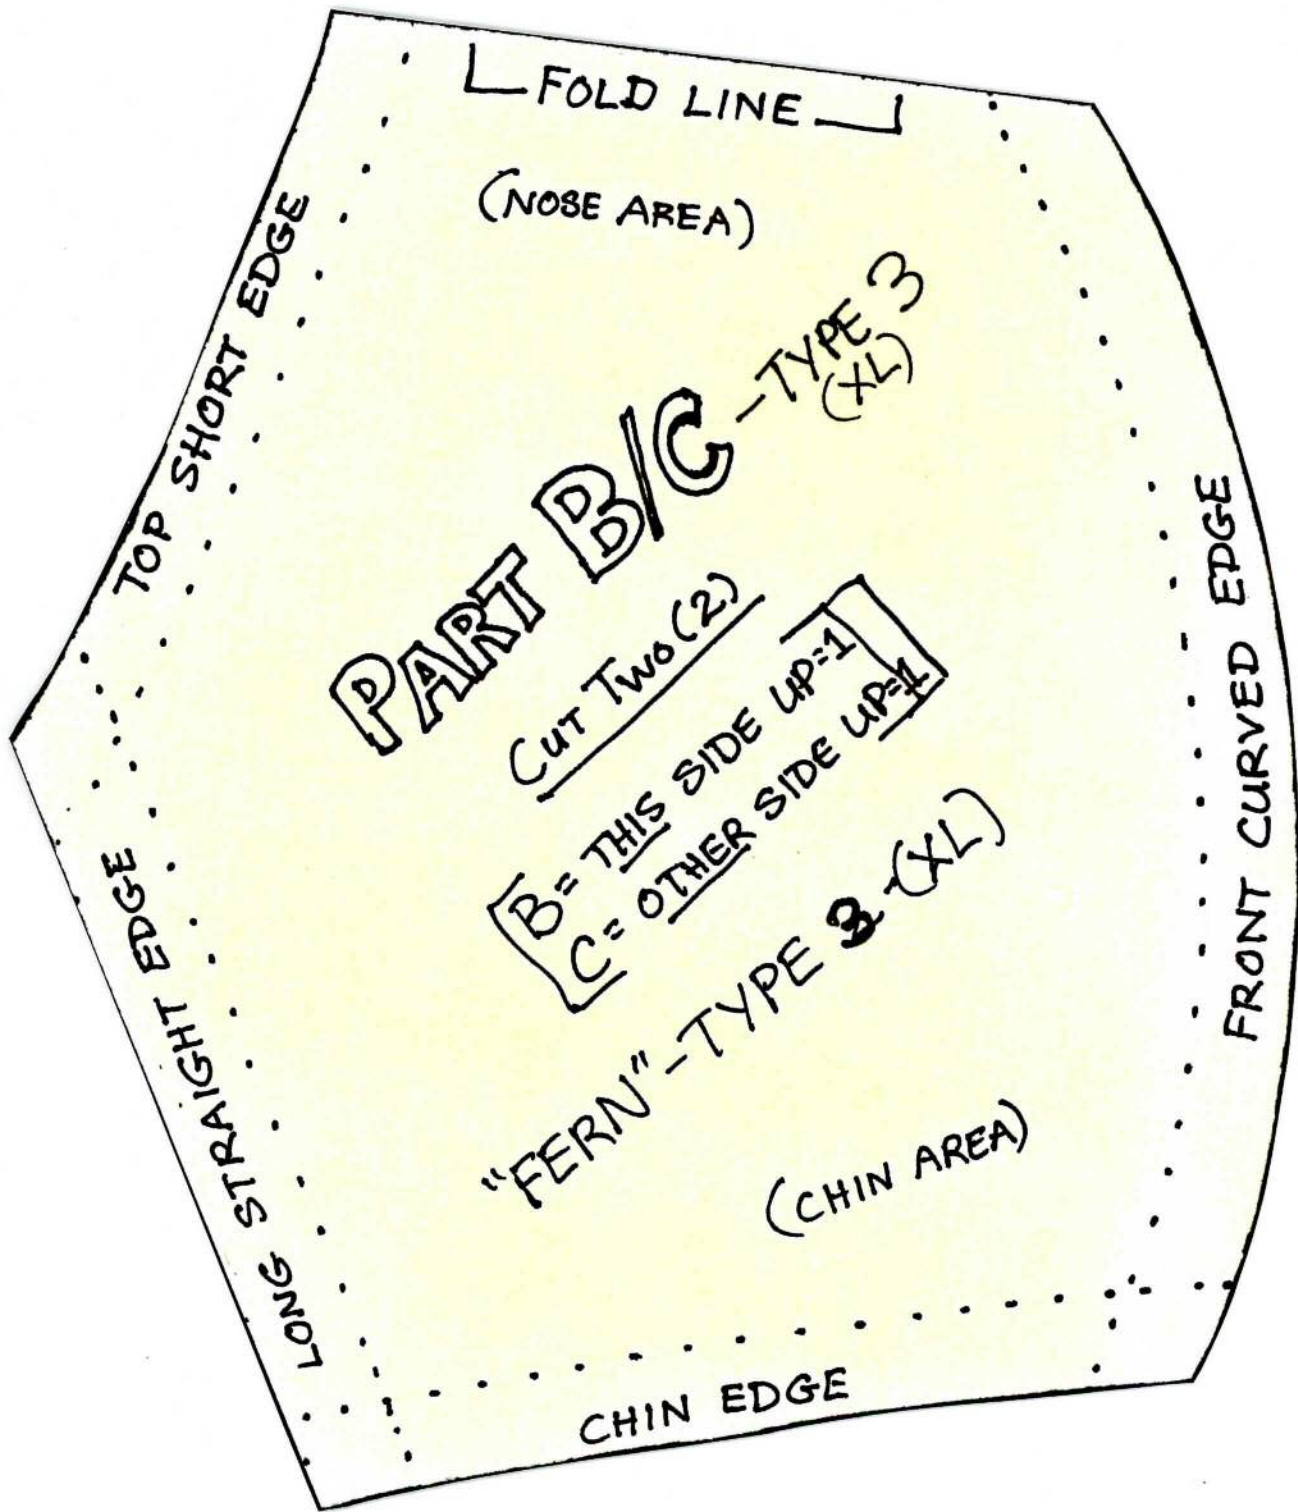 FOLD LINE
(NOSE AREA)
TOP SHORT EDGE
PART B/C -TYPE 3
(XL)
CUT TWO (2)
B= THIS SIDE UP=1
C= OTHER SIDE UP=1
"FERN"-TYPE 3-(XL)
(CHIN AREA)
FRONT CURVED EDGE
LONG STRAIGHT EDGE
CHIN EDGE